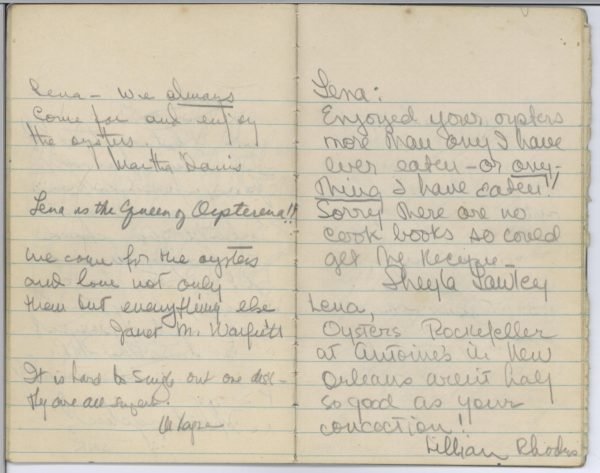 Lena - We always
come for and enjoy
the oysters
Martha Davis
Lena is the Queen of Oysterena!!
We come for the oysters
and love not only
them but everything else
Janet M. Warfield
It is hard to single out one dish -
they are all superb.
Lena:
Enjoyed your oysters
more than any I have
ever eaten - or any-
thing I have eaten!!
Sorry there are no
cook books so could
get the receipe -
Sheyla
Lena,
Oysters Rockefeller
at Antoine's in New
Orleans aren't half
so good as your
concoction!
Lillian Rhodes